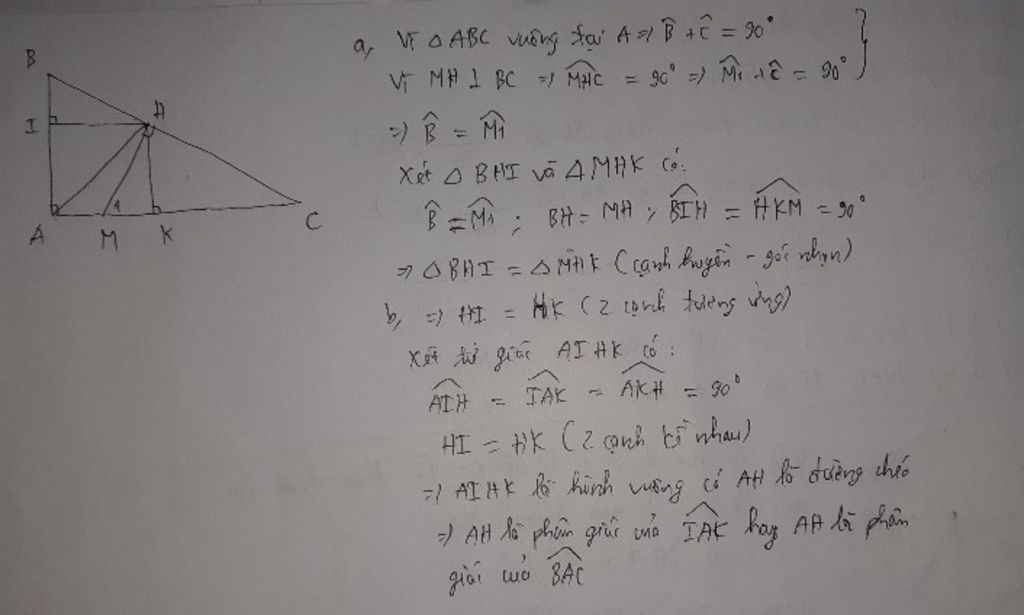 B
I
H
A
M
1
K
C
a, Vì △ABC vuông tại A => B̂ + Ĉ = 90°
Vì MH ⊥ BC => M̂HC = 90° => M̂1 + Ĉ = 90°
=> B̂ = M̂1
Xét △BHI và △MHK có:
B̂ = M̂1 ; BH = MH ; B̂IH = ĤKM = 90°
=> △BHI = △MHK (cạnh huyền - góc nhọn)
b, => HI = HK (2 cạnh tương ứng)
Xét tứ giác AIHK có:
ÂIH = ÎAK = ÂKH = 90°
HI = HK (2 cạnh kề nhau)
=> AIHK là hình vuông có AH là đường chéo
=> AH là phân giác của ÎAK hay AH là phân
giác của B̂AC